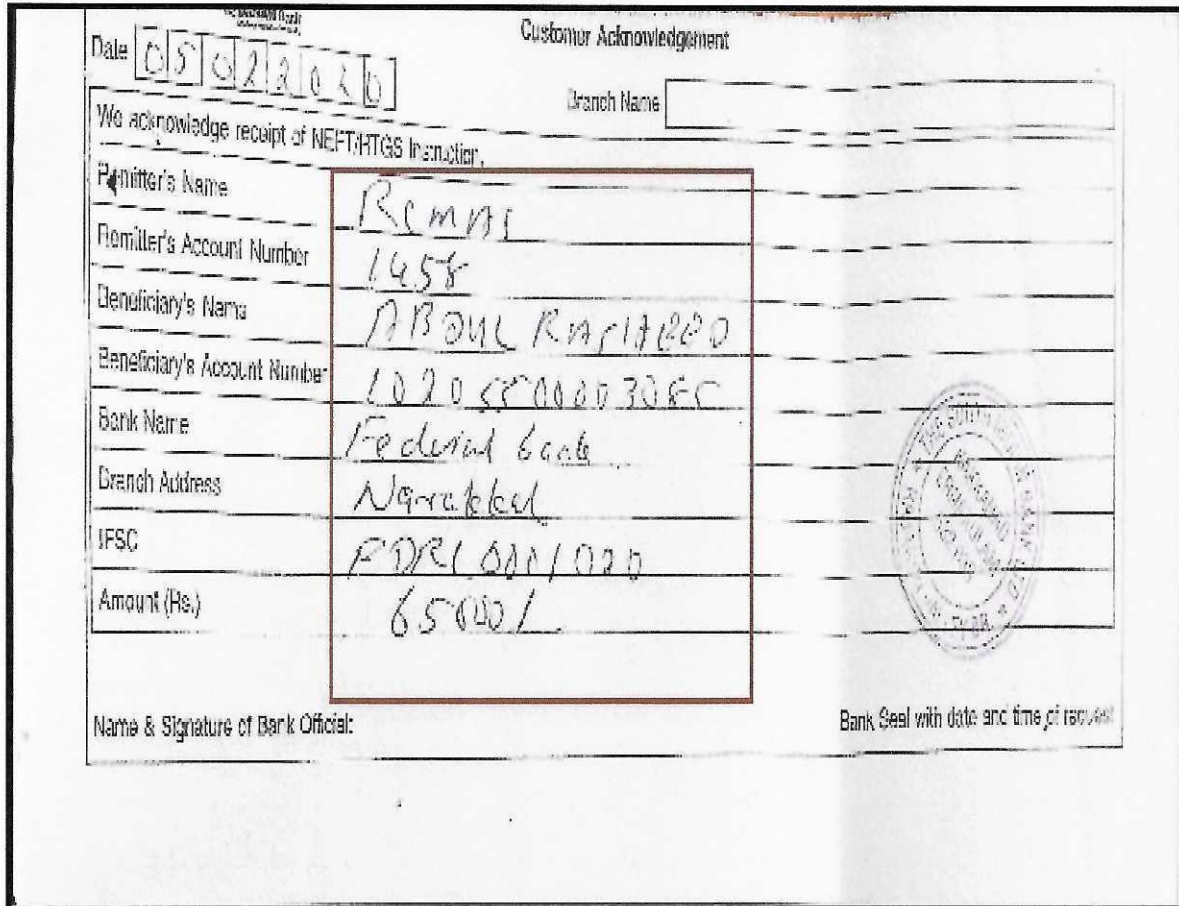 Customer Acknowledgement
Date 05022020
Branch Name
We acknowledge receipt of NEFT/RTGS Instruction.
Remitter's Name
Remitter's Account Number 1458
Beneficiary's Name ABDUL
Beneficiary's Account Number
Bank Name Federal bank
Branch Address Narakkal
IFSC FDRL0001020
Amount (Rs.) 65000/
Name & Signature of Bank Official:
Bank Seal with date and time of request